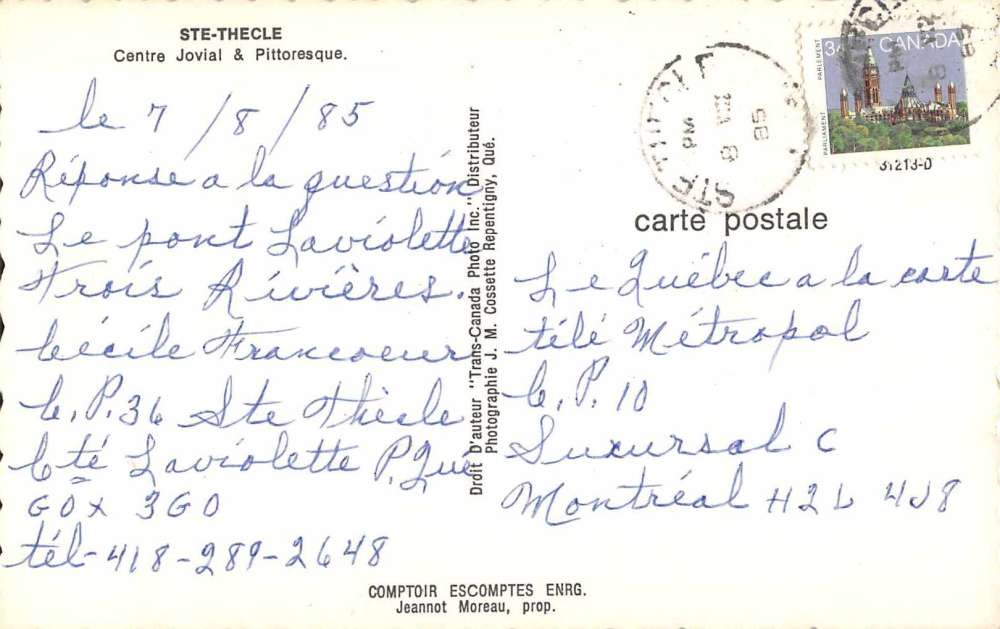 STE-THECLE
Centre Jovial & Pittoresque.
le 7/8/85
Réponse a la question
Le pont Laviolette
Trois Rivières.
Cécile Francoeur
C.P. 36 Ste Thècle
Cté Laviolette P. Qué
G0X 3G0
tél-418-289-2648
Droit D'auteur "Trans-Canada Photo Inc." Distributeur
Photographie J. M. Cossette Repentigny, Qué.
STE THECLE
PM
8
85
PARLEMENT
PARLIAMENT
34 CANADA
31213-D
carte postale
Le Québec a la carte
télé Métropol
C.P. 10
Sucursal C
Montréal H2L 4J8
COMPTOIR ESCOMPTES ENRG.
Jeannot Moreau, prop.